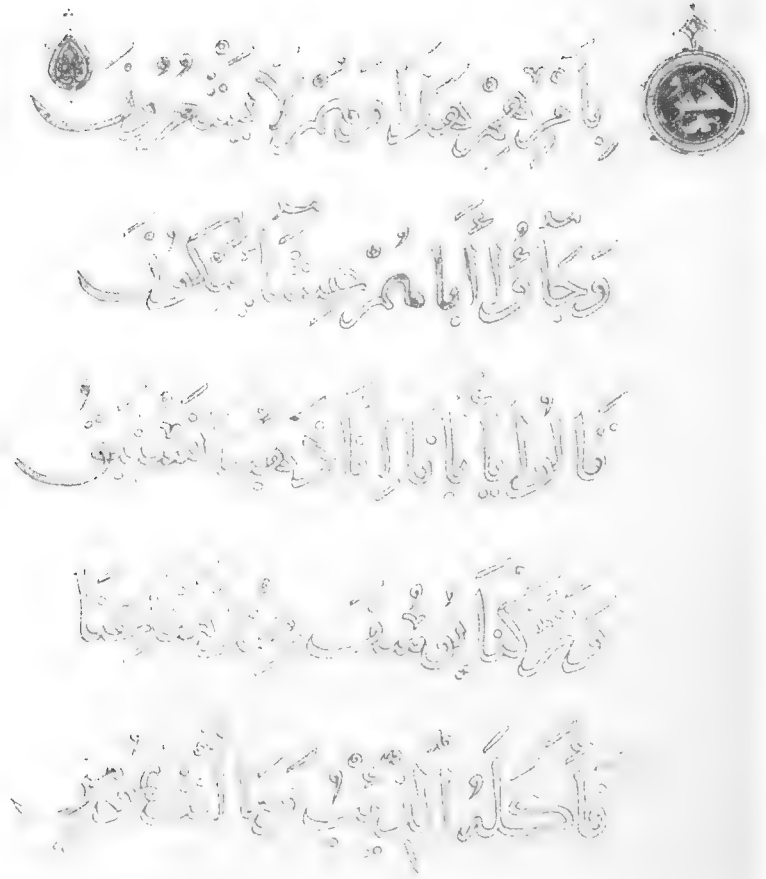 بِأَمْرِهِمْ هَٰذَا وَهُمْ لَا يَشْعُرُونَ
وَجَآءُو أَبَاهُمْ عِشَآءً يَبْكُونَ
قَالُوا يَا أَبَانَا إِنَّا ذَهَبْنَا نَسْتَبِقُ
وَتَرَكْنَا يُوسُفَ عِندَ مَتَاعِنَا
فَأَكَلَهُ الذِّئْبُ وَمَا أَنتَ بِمُؤْمِنٍ